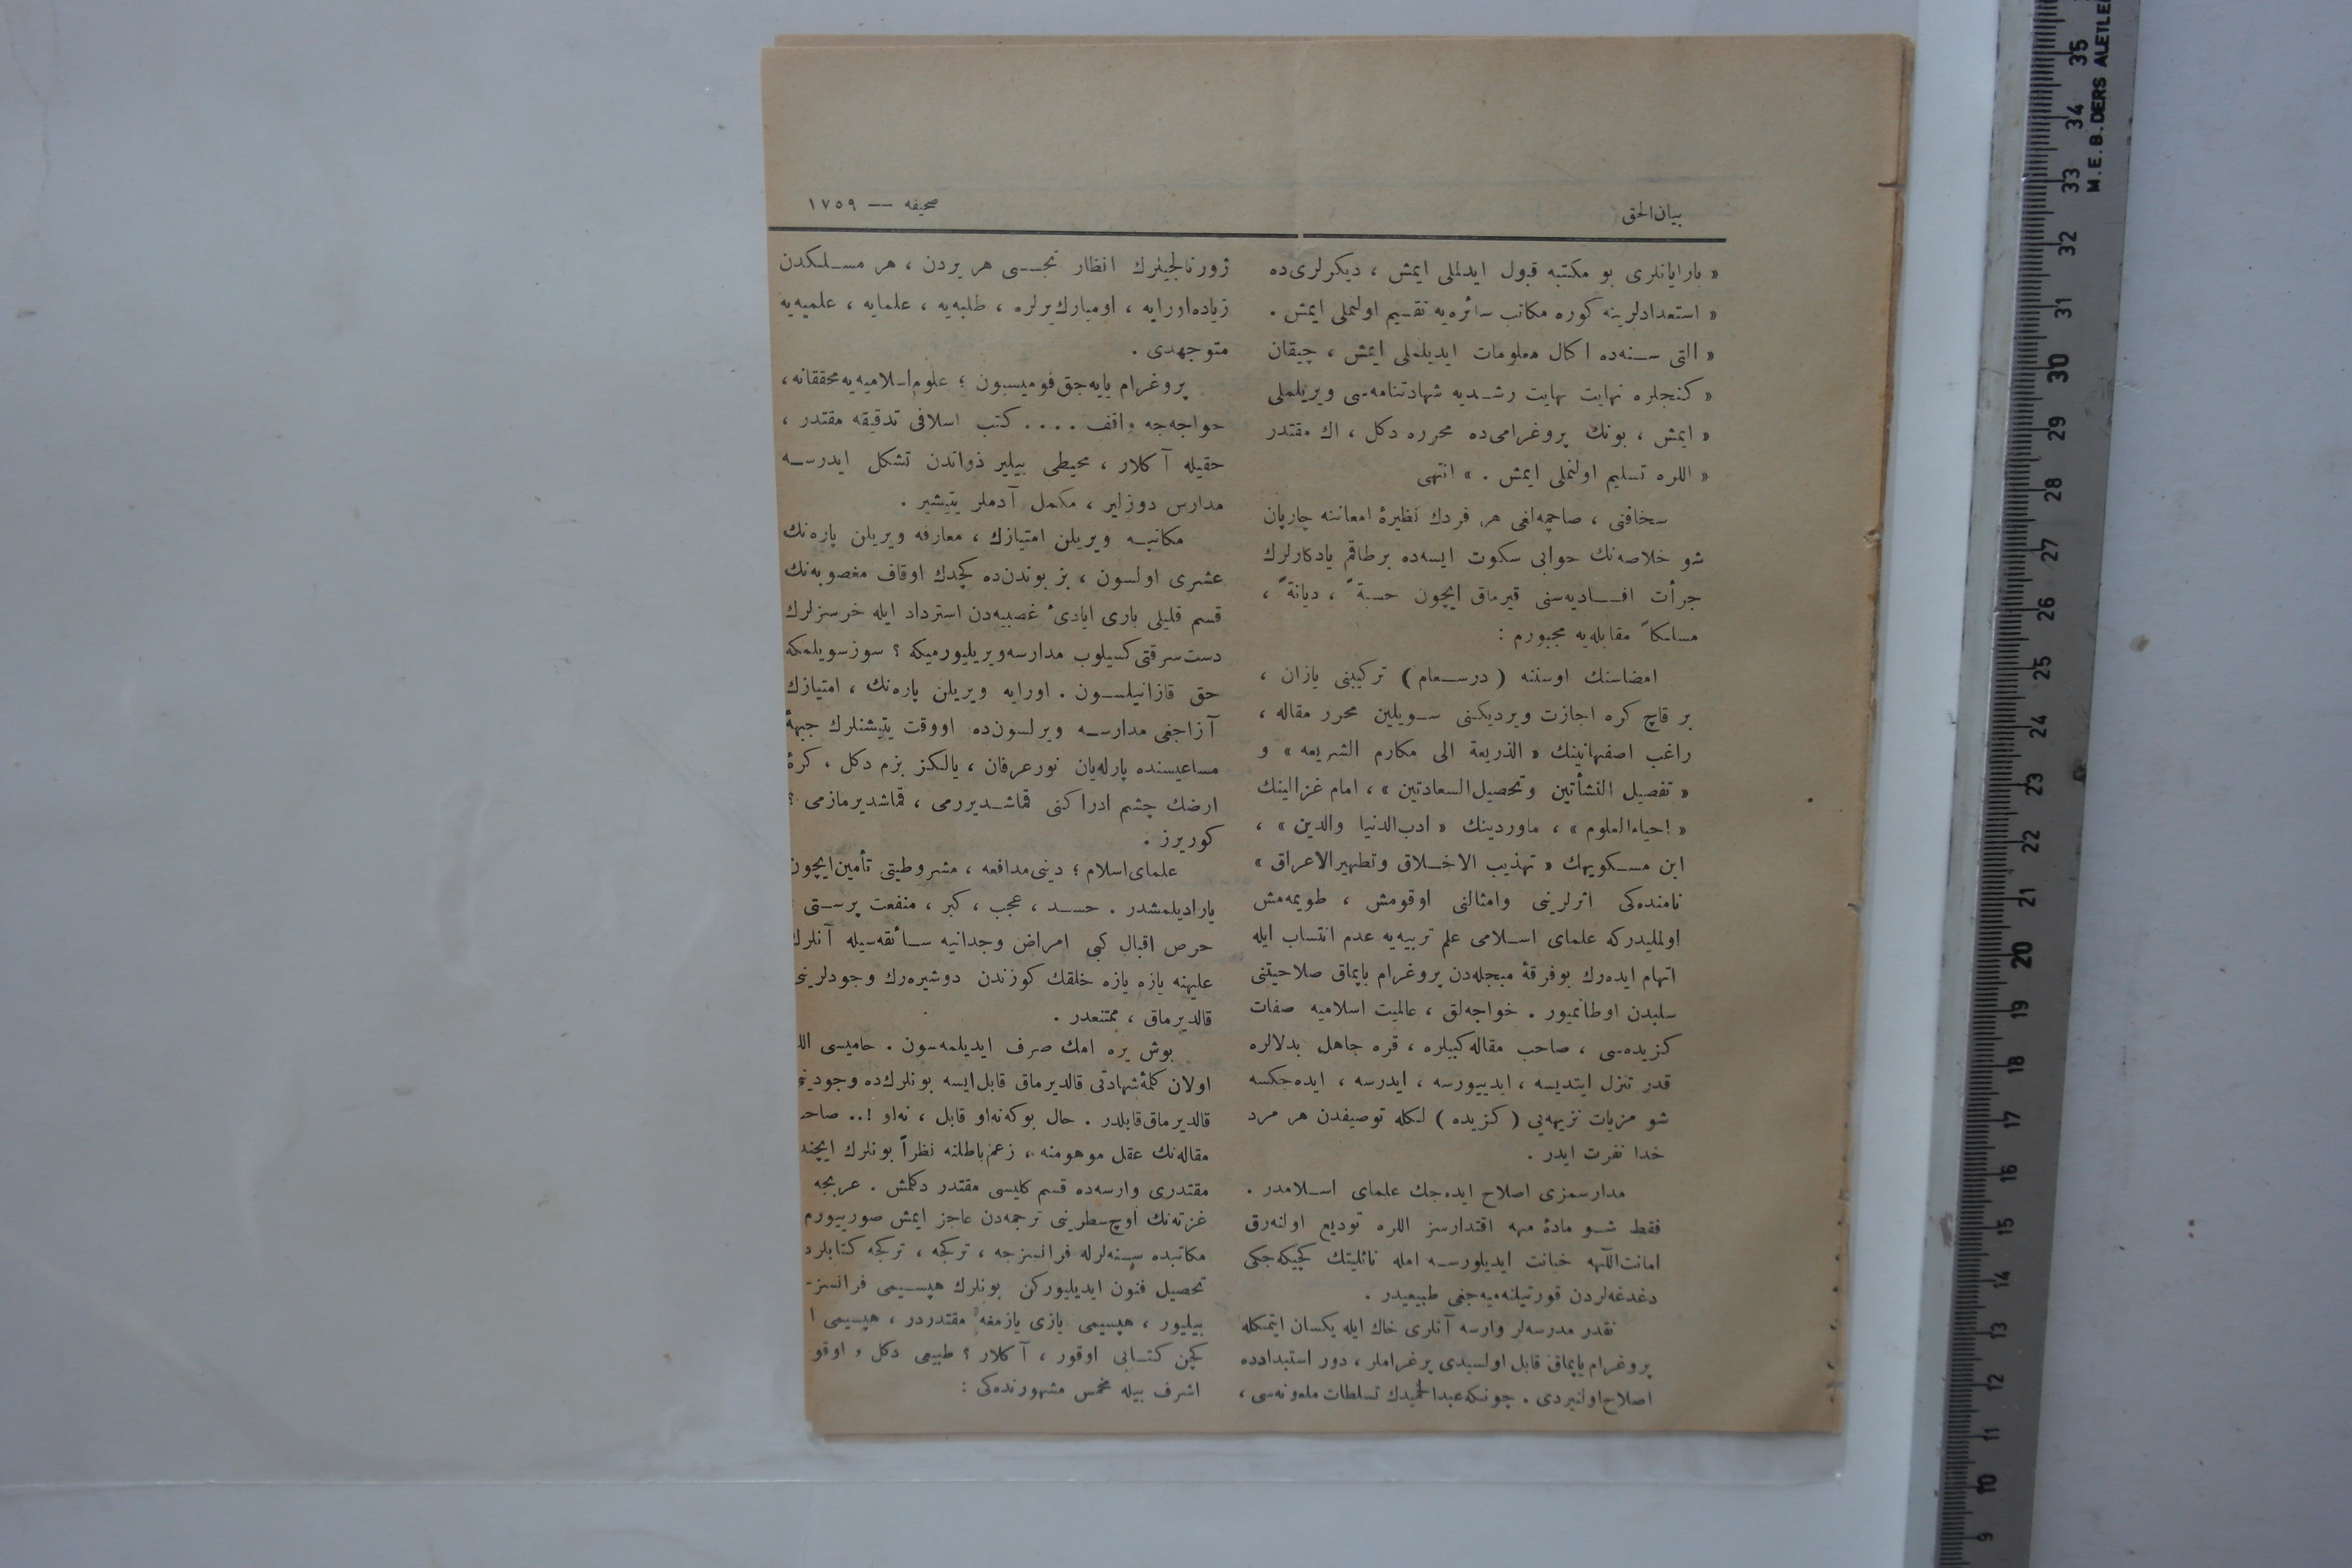 بيان‌الحق
صحيفه — ١٧٥٩
« يارايانلرى بو مكتبه قبول ايدلملى ايمش ، ديكرلرى‌ده
« استعدادلرينه كوره مكاتب سائره‌يه تقسيم اولنملى ايمش .
« التى سنه‌ده اكمال معلومات ايديلملى ايمش ، چيقان
« كنجلره نهايت نهايت رشديه شهادتنامه‌سى ويريلملى
« ايمش ، بونك پروغرامى‌ده محرره دكل ، اك مقتدر
« اللره تسليم اولنملى ايمش . » انتهى
سخافتى ، صاچمه‌لغى هر فردك نظيرهٔ امعاننه چارپان
شو خلاصه‌نك جوابى سكوت ايسه‌ده برطاقم يادكارلرك
جرأت افساديه‌سنى قيرماق ايچون حسبةً ، ديانةً ،
مسلكاً مقابله‌يه مجبورم :
امضاسنك اوستنه ( درسعام ) تركيبنى يازان ،
بر قاچ كره اجازت ويرديكنى سويلين محرر مقاله ،
راغب اصفهانينك « الذريعة الى مكارم الشريعه » و
« تفصيل النشأتين وتحصيل‌السعادتين » ، امام غزالينك
« احياءالعلوم » ، ماوردينك « ادب‌الدنيا والدين » ،
ابن مسكويهك « تهذيب الاخلاق وتطهيرالاعراق »
نامنده‌كى اثرلرينى وامثالنى اوقومش ، طويمه‌مش
اولمليدركه علماى اسلامى علم تربيه‌يه عدم انتساب ايله
اتهام ايده‌رك بوفرقهٔ مبجله‌دن پروغرام ياپماق صلاحيتنى
سلبدن اوطانميور . خواجه‌لق ، عالميت اسلاميه صفات
كزيده‌سى ، صاحب مقاله كبيلره ، قره جاهل بدلالره
قدر تنزل ايتديسه ، ايدييورسه ، ايدرسه ، ايده‌جكسه
شو مزيات نزيهه‌يى ( كزيده ) لكله توصيفدن هر مرد
خدا نفرت ايدر .
مدارسمزى اصلاح ايده‌جك علماى اسلامدر .
فقط شو مادهٔ مهمه اقتدارسز اللره توديع اولنه‌رق
امانت‌اللهه خيانت ايديلورسه امله نائليتك كجيكه‌جكى
دغدغه‌لردن قورتيلنه‌ميه‌جغى طبيعيدر .
نقدر مدرسه‌لر وارسه آنلرى خاك ايله يكسان ايتمكله
پروغرام ياپماق قابل اولسيدى پرغراملر ، دور استبدادده
اصلاح‌اولنيردى . چونكه عبدالحميدك تسلطات ملعونه‌سى ،
ژورنالجيلرك انظار تجسسى هر يردن ، هر مسلكدن
زياده‌اورايه ، اومبارك‌يرلره ، طلبه‌يه ، علمايه ، علميه‌يه
متوجهدى .
پروغرام ياپه‌جق‌قوميسيون ؛ علوم‌اسلاميه‌يه‌محققانه ،
خواجه‌جه واقف .... كتب اسلافى تدقيقه مقتدر ،
حقيله آكلار ، محيطى بيلير ذواتدن تشكل ايدرسه
مدارس دوزلير ، مكمل آدملر يتيشير .
مكاتبه ويريلن امتيازك ، معارفه ويريلن پاره‌نك
عشرى اولسون ، بز بوندن‌ده كچدك اوقاف مغصوبه‌نك
قسم قليلى بارى ايادىٔ غصبيه‌دن استرداد ايله خرسزلرك
دست‌سرقتى‌كسيلوب مدارسه‌ويريليورميكه ؟ سوزسويلمكه
حق قازانيلسون . اورايه ويريلن پاره‌نك ، امتيازك
آزاجغى مدارسه ويرلسون‌ده اووقت يتيشنلرك جبههٔ
مساعيسنده پارله‌يان نورعرفان ، يالكز بزم دكل ، كرهٔ
ارضك چشم ادراكنى قماشديررمى ، قماشديرمازمى ؟
كوريرز .
علماى‌اسلام ؛ دينى‌مدافعه ، مشروطيتى تأمين‌ايچون
ياراديلمشدر . حسد ، عجب ، كبر ، منفعت پرستى
حرص اقبال كبى امراض وجدانيه سائقه‌سيله آنلرك
عليهنه يازه يازه خلقك كوزندن دوشيره‌رك وجودلرينى
قالديرماق ، ممتنعدر .
بوش يره امك صرف ايديلمه‌سون . حاميسى الله
اولان كلمهٔ‌شهادتى قالديرماق قابل‌ايسه بونلرك‌ده وجودينى
قالديرماق‌قابلدر . حال بوكه‌نه‌او قابل ، نه‌او !.. صاحب
مقاله‌نك عقل موهومنه ، زعم‌باطلنه نظراً بونلرك ايچنده
مقتدرى وارسه‌ده قسم كليسى مقتدر دكلمش . عربجه
غزته‌نك اوچ‌سطرينى ترجمه‌دن عاجز ايمش صورييورم
مكاتبده سنه‌لرله فرانسزجه ، تركجه ، تركجه كتابلرد
تحصيل فنون ايديليوركن بونلرك هپسيمى فرانسز-
بيليور ، هپسيمى يازى يازمغه مقتدردر ، هپسيمى ا
كچن كتابى اوقور ، آكلار ؟ طبيعى دكل ، اوقو
اشرف بيله مخمس مشهورنده‌كى :